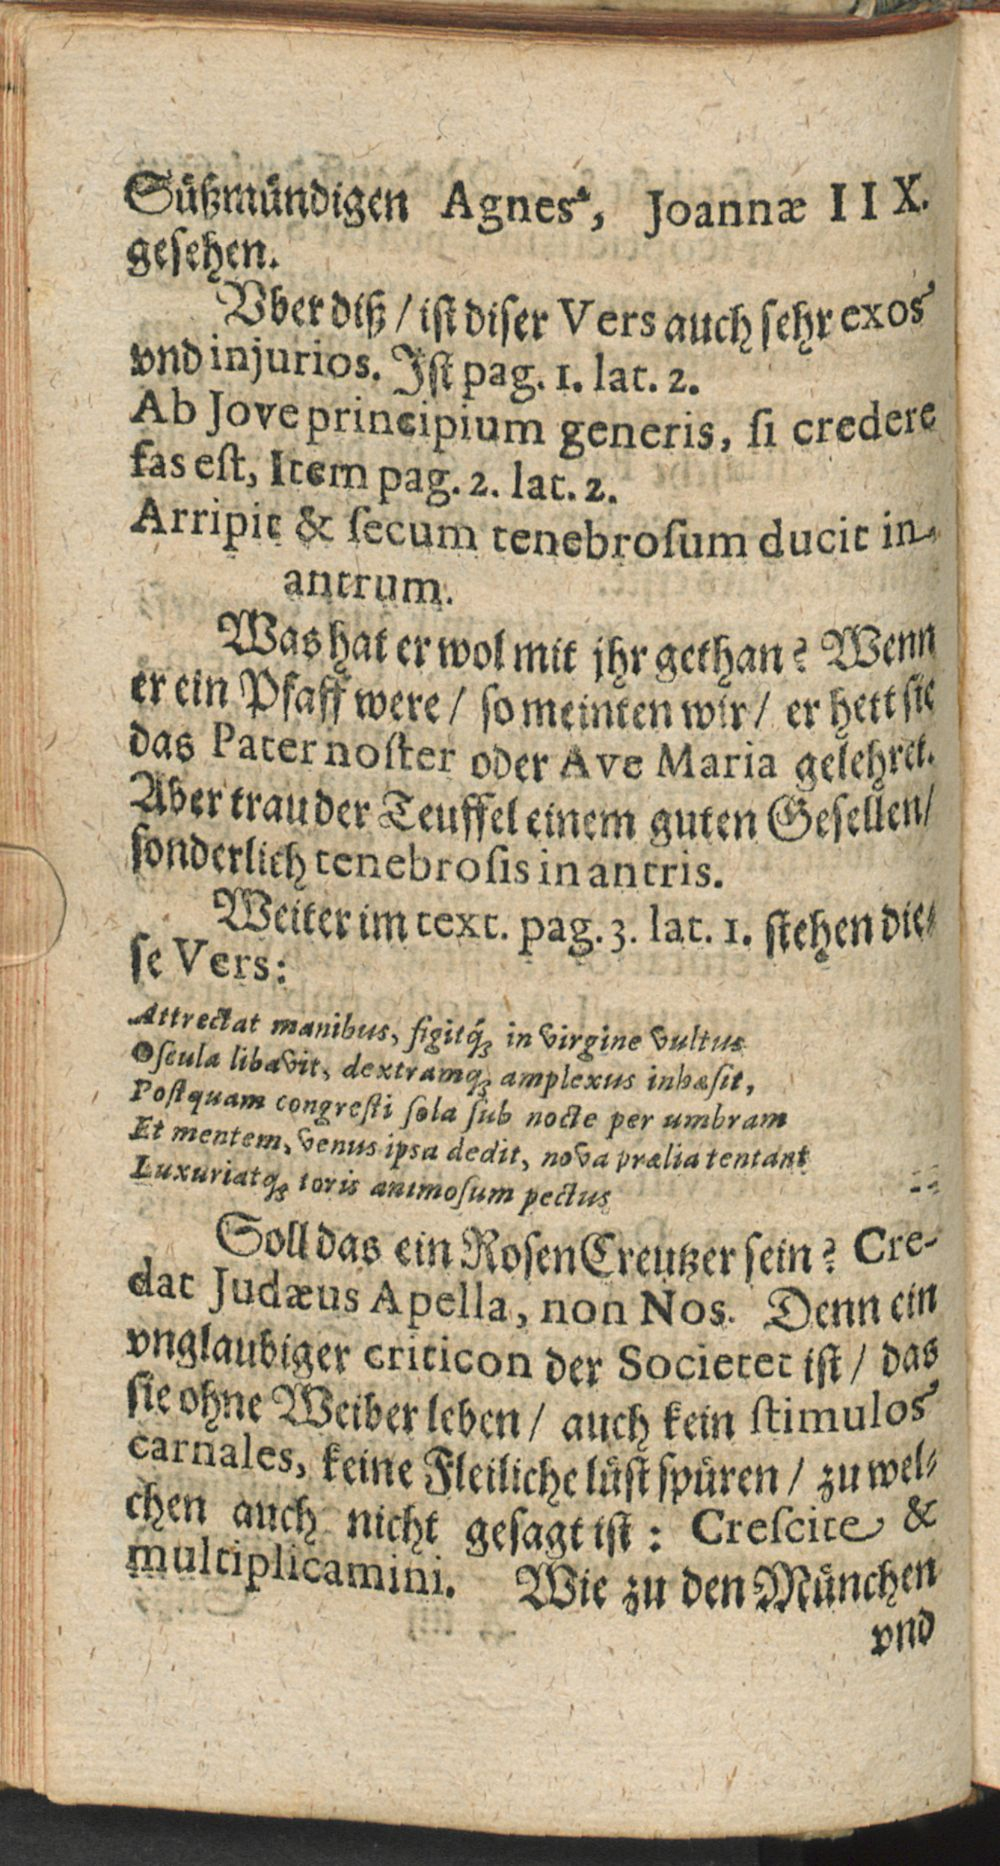 Süßmündigen Agnesᵃ, Joannæ IIX.
gesehen.
Vber diß / ist diser Vers auch sehr exos
vnd injurios. Jst pag. 1. lat. 2.
Ab Jove principium generis, ſi credere
fas eſt, Item pag. 2. lat. 2.
Arripit & ſecum tenebroſum ducit in
antrum.
Was hat er wol mit jhr gethan? Wenn
er ein Pfaff were / so meinten wir / er hett sie
das Pater noſter oder Ave Maria gelehret.
Aber trau der Teuffel einem guten Gesellen /
sonderlich tenebroſis in antris.
Weiter im text. pag. 3. lat. 1. stehen die⸗
se Vers:
Attrectat manibus, figitq́ꝫ in virgine vultus
Oſcula libavit, dextramqꝫ amplexus inhæſit,
Poſtquam congreſti ſola ſub nocte per umbram
Et mentem, venus ipsa dedit, nova prælia tentant
Luxuriatqꝫ toris animoſum pectus --
Soll das ein RosenCreutzer sein? Cre-
dat Judæus Apella, non Nos. Denn ein
vnglaubiger criticon der Societet ist / das
sie ohne Weiber leben / auch kein ſtimulos
carnales, keine Fleiliche lüst spüren / zu wel⸗
chen auch nicht gesagt ist: Creſcite &
multiplicamini. Wie zu den München
vnd